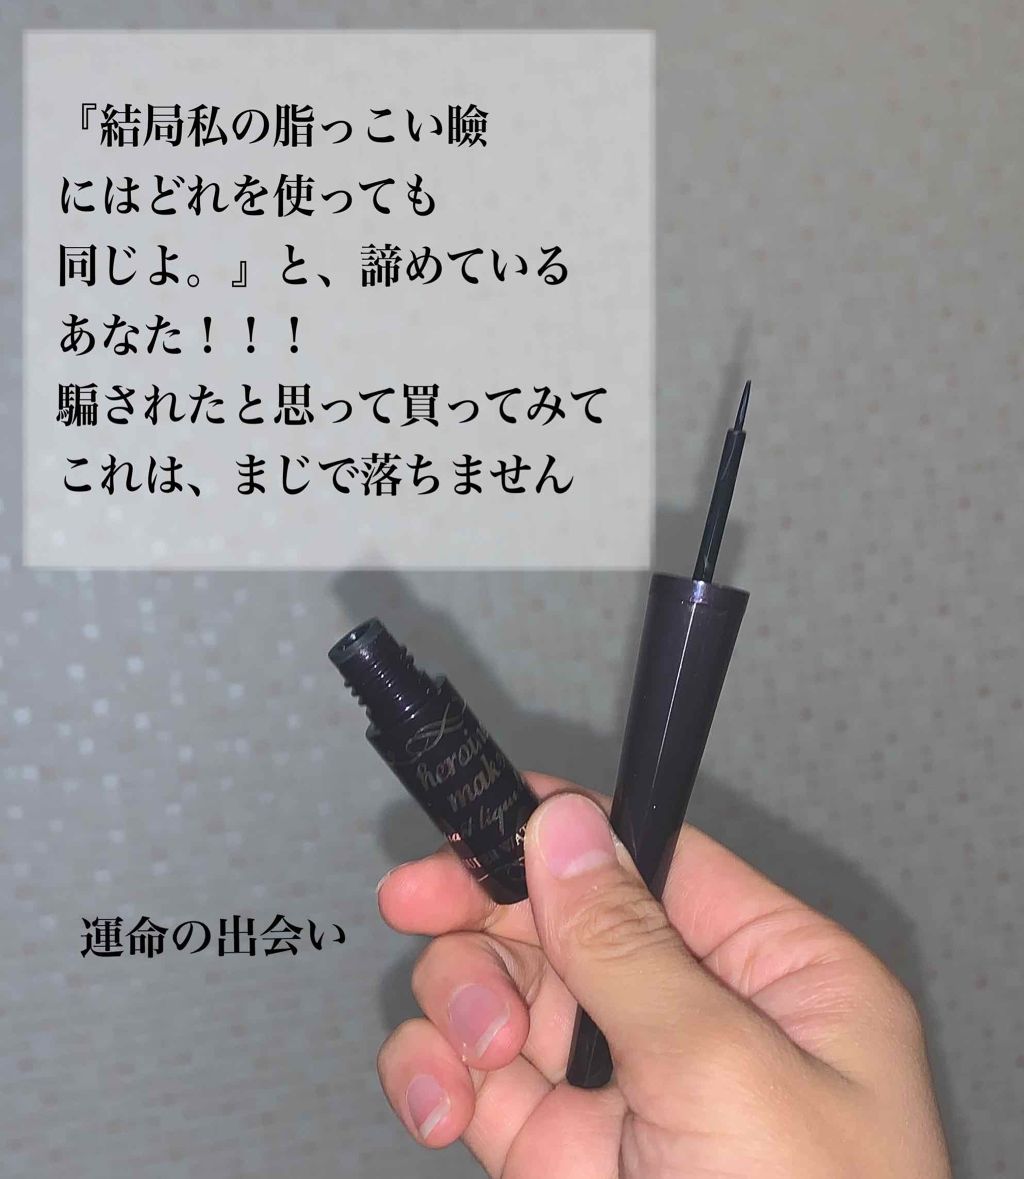 『結局私の脂っこい瞼
にはどれを使っても
同じよ。』と、諦めている
あなた！！！
騙されたと思って買ってみて
これは、まじで落ちません
heroine
make
運命の出会い